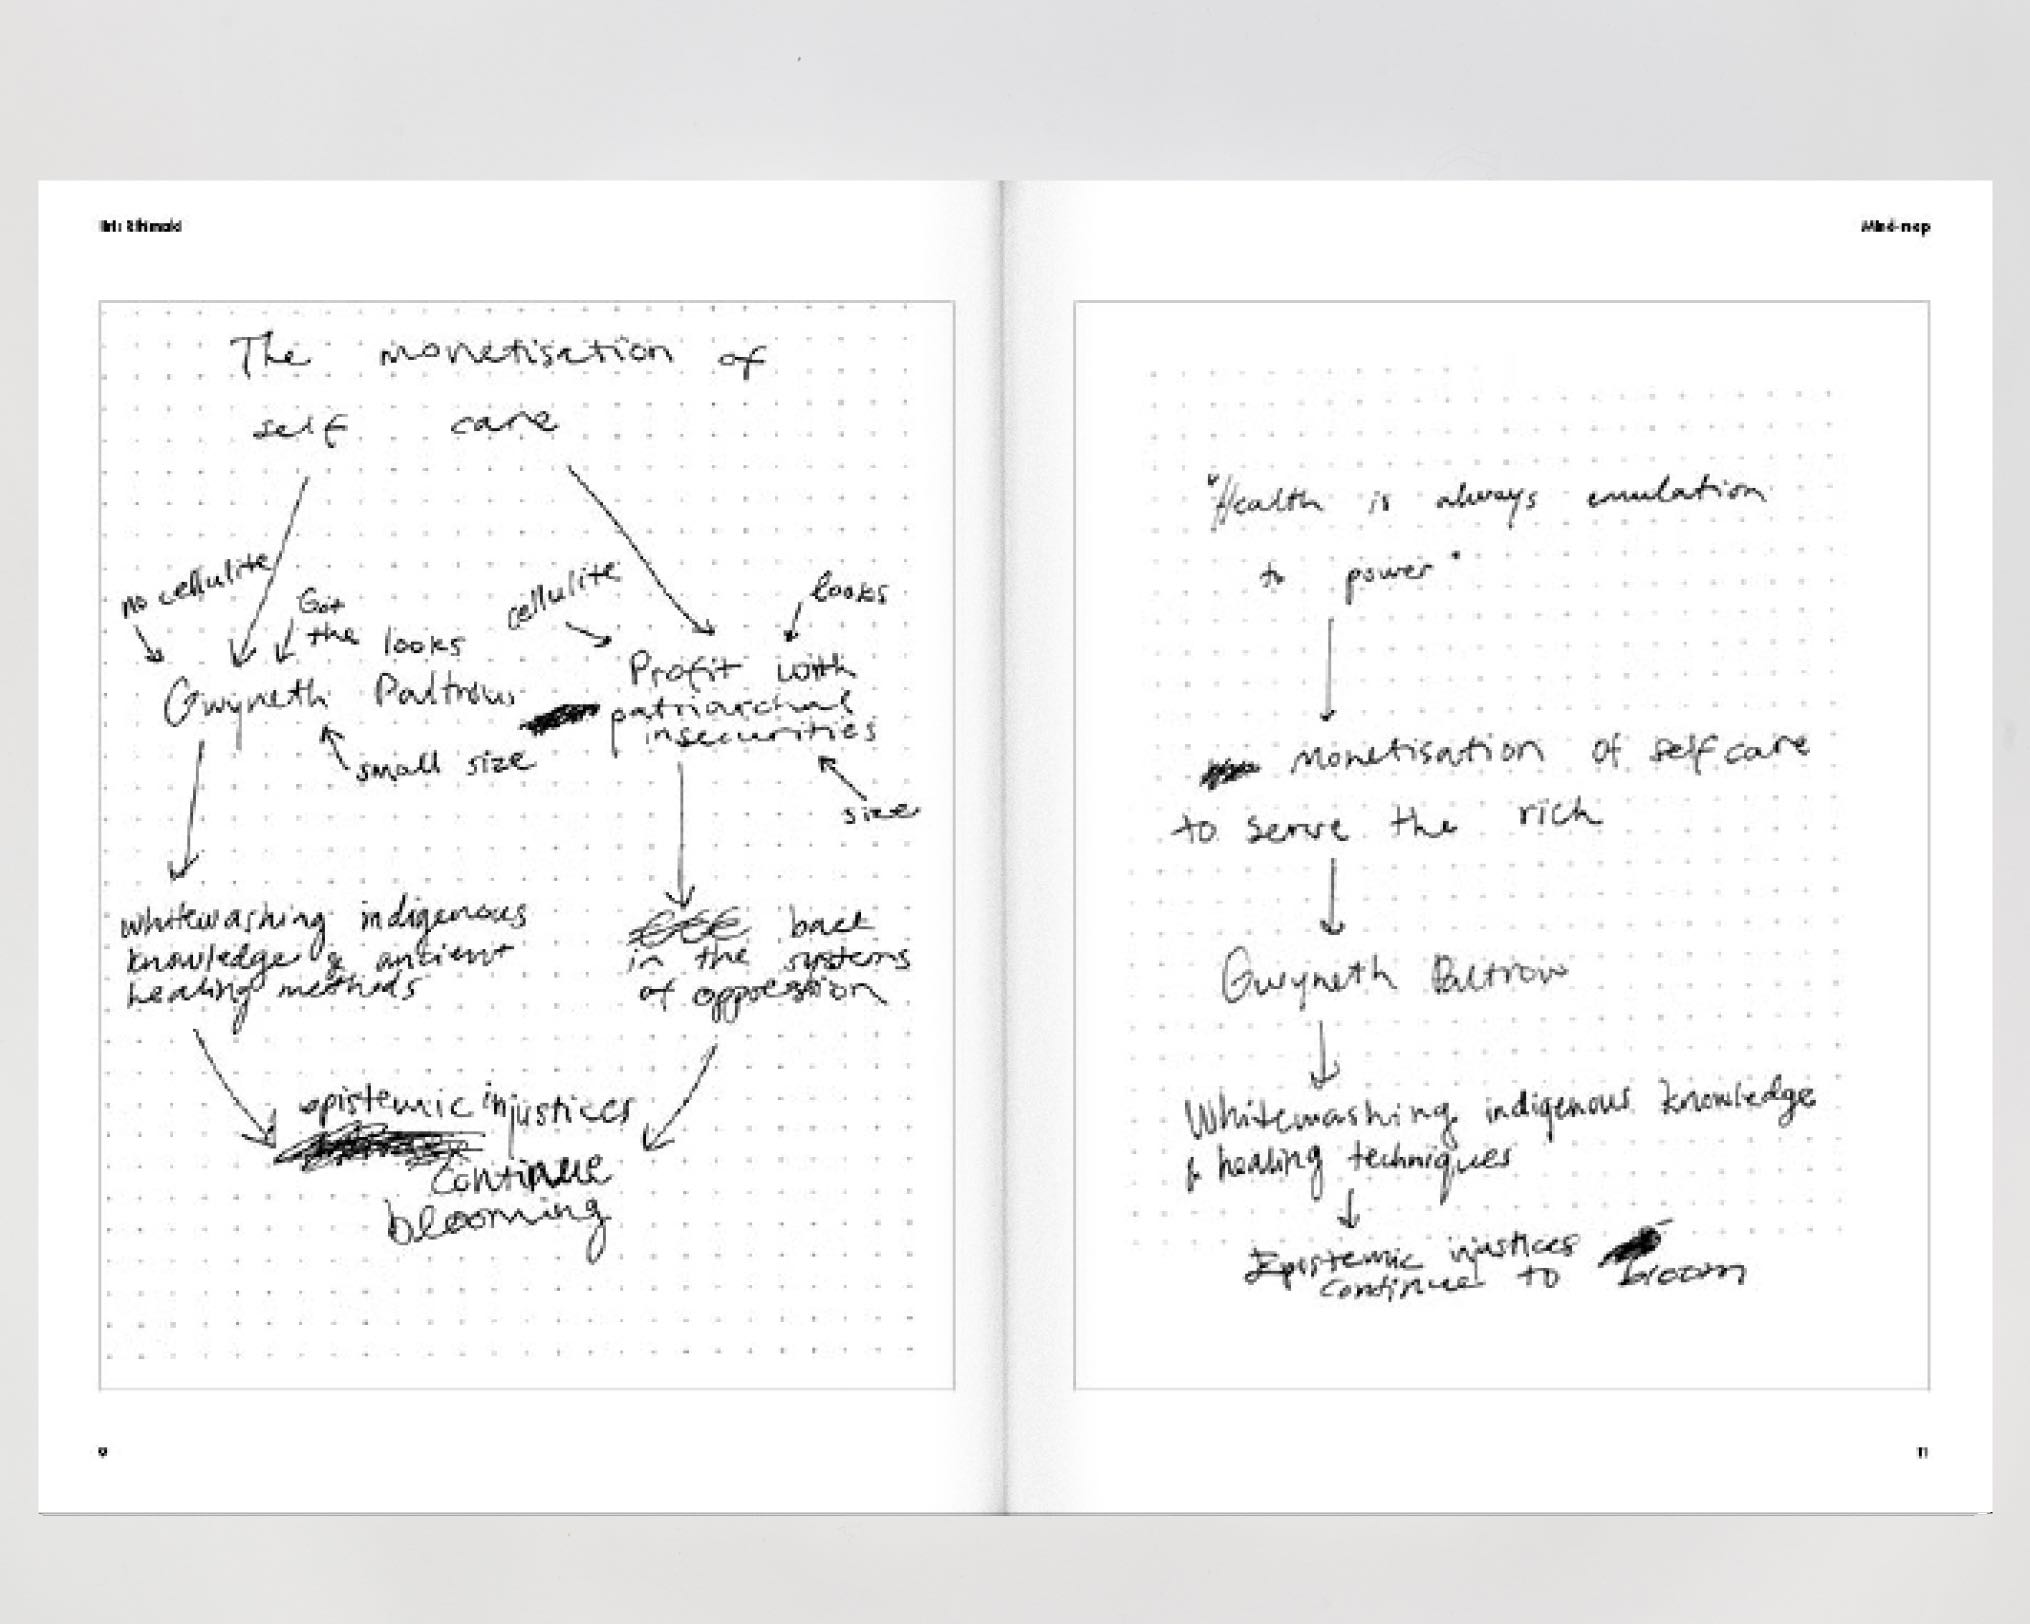 Mind-map
The monetisation of
self care
no cellulite
Got
the looks
Gwyneth Paltrow
small size
cellulite
looks
Profit with
patriarchal
insecurities
size
whitewashing indigenous
knowledge & ancient
healing methods
back
in the systems
of oppression
epistemic injustices
continue
blooming
9
"Health is always emulation
to power"
Monetisation of self care
to serve the rich
Gwyneth Paltrow
Whitewashing indigenous knowledge
& healing techniques
Epistemic injustices
continue to bloom
11